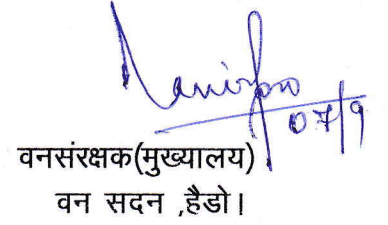 07/9
वनसंरक्षक(मुख्यालय)
वन सदन ,हैडो।